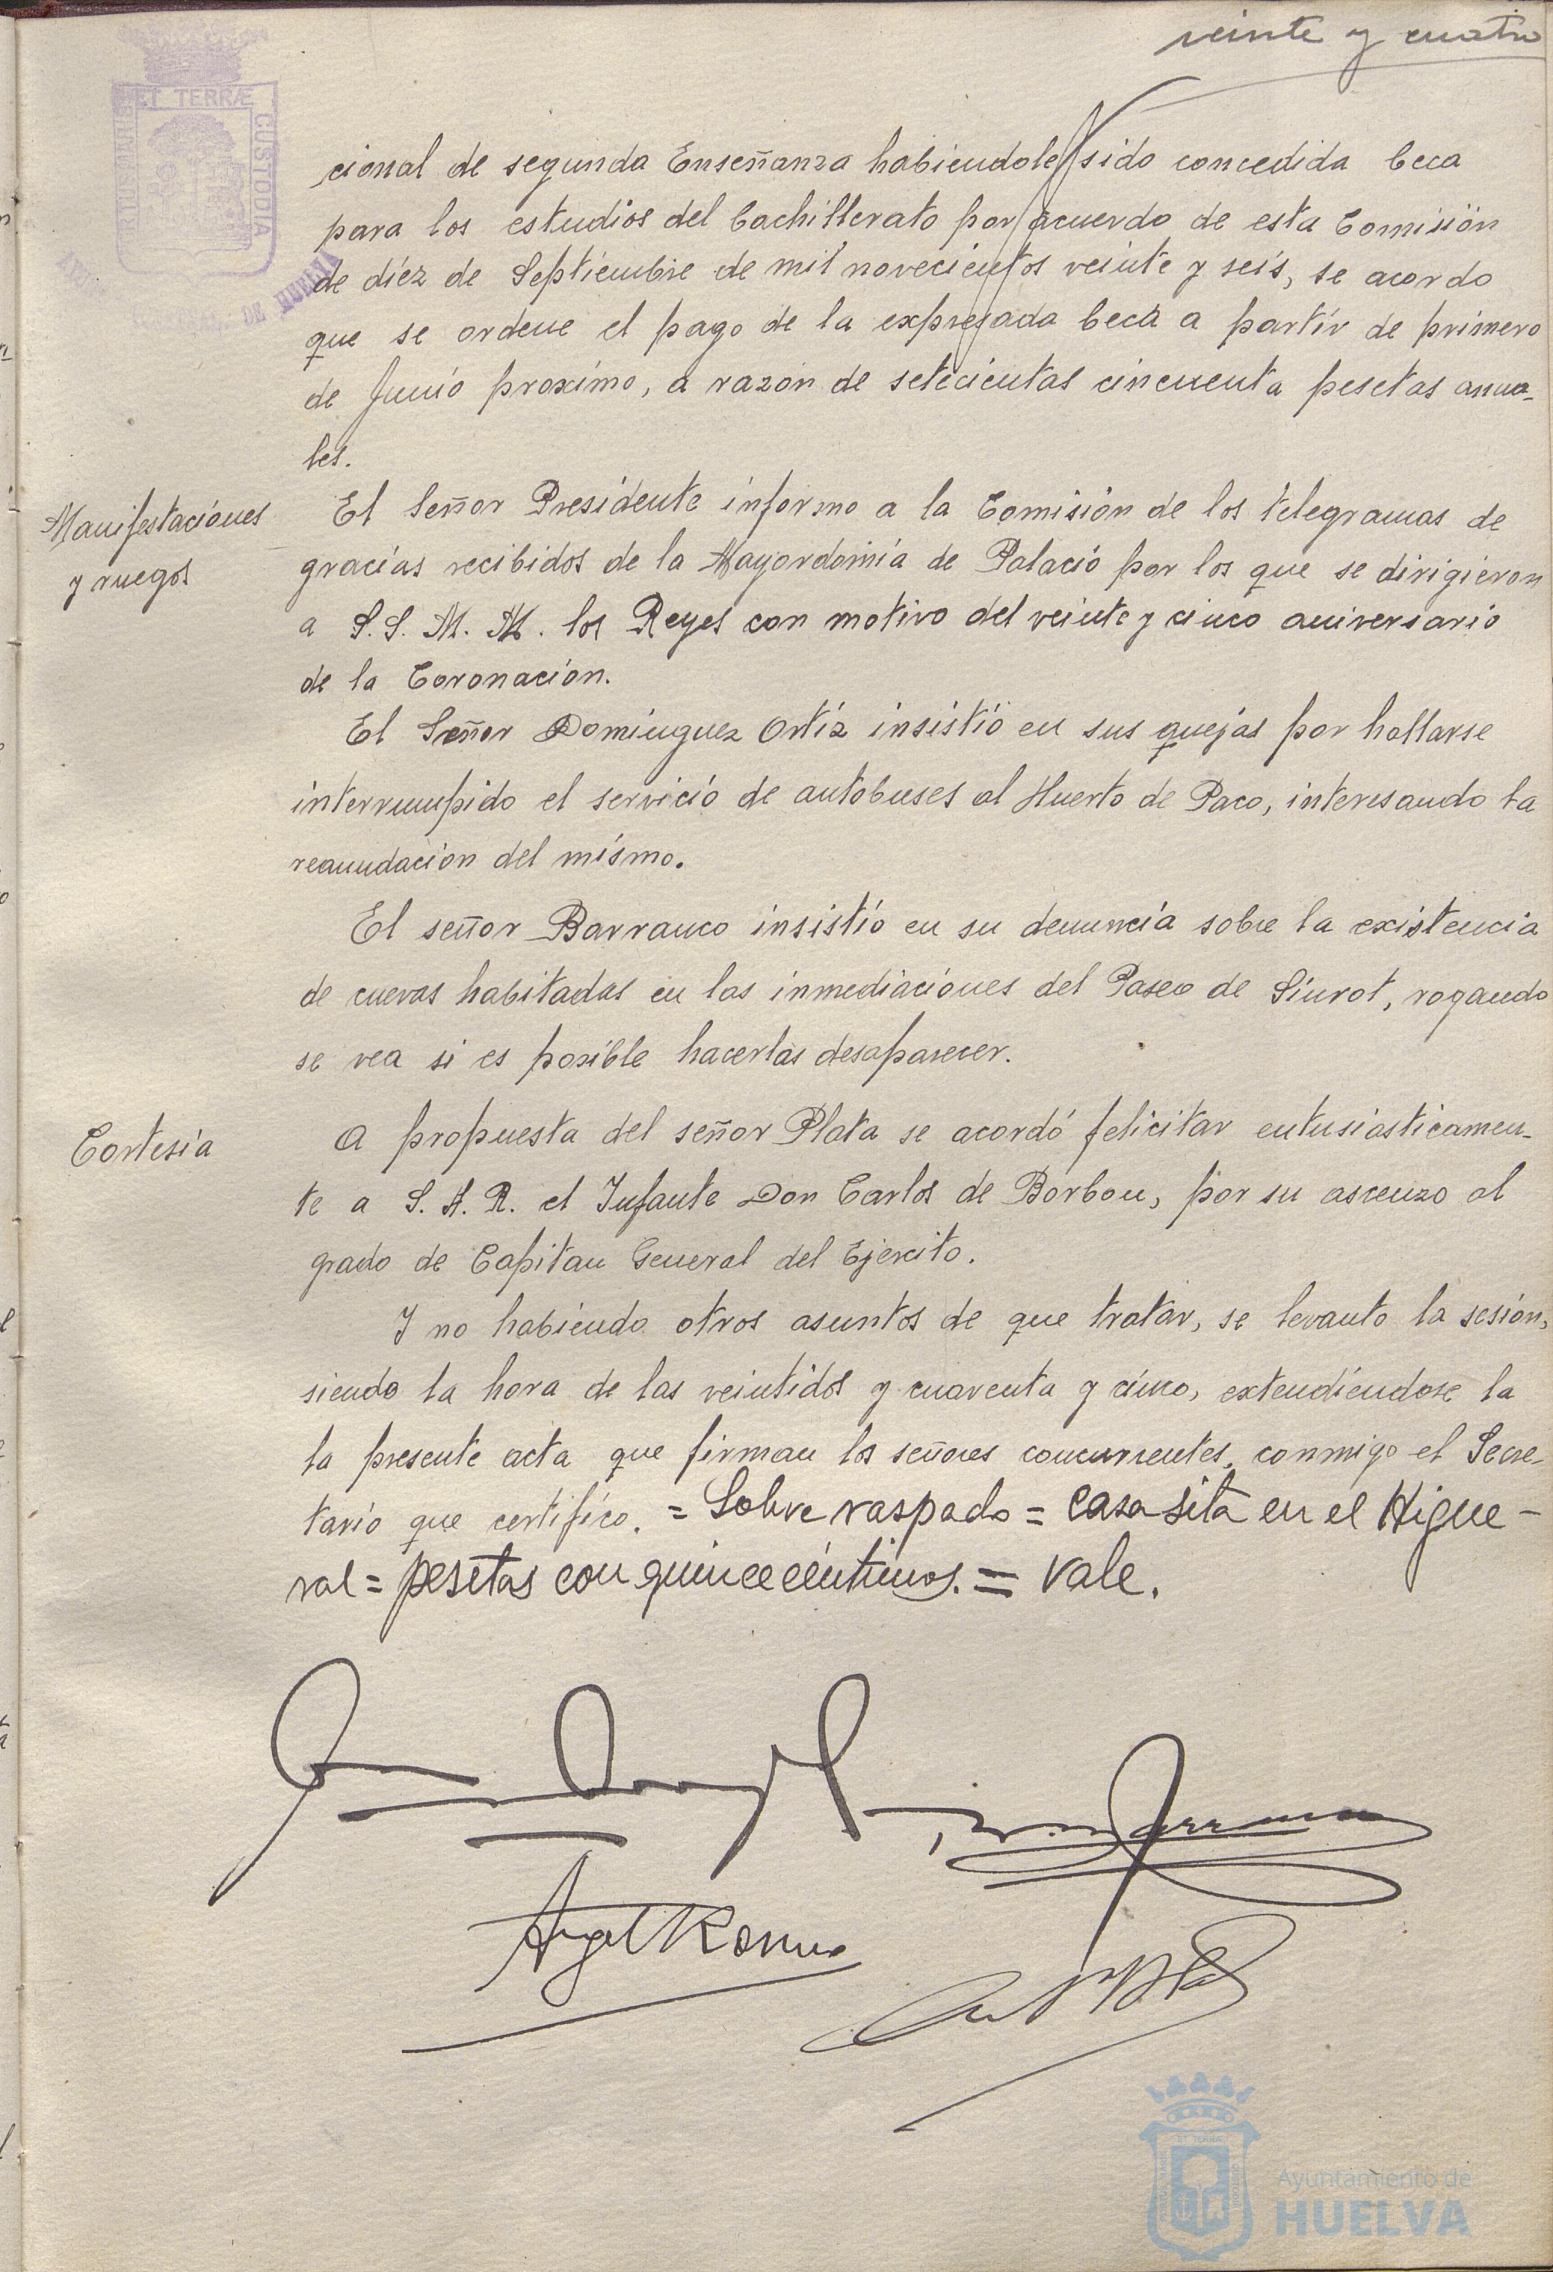 veinte y cuatro
ET TERRÆ
CUSTODIA
DE HUELVA
cional de segunda Enseñanza habiendole sido concedida beca
para los estudios del bachillerato por acuerdo de esta Comisión
de diéz de Septiembre de mil novecientos veinte y seis, se acordo
que se ordene el pago de la expresada beca a partir de primero
de Junio proximo, a razón de setecientas cincuenta pesetas anua-
les.
Manifestaciones
y ruegos
El Señor Presidente informo a la Comisión de los telegramas de
gracias recibidos de la Mayordomia de Palacio por los que se dirigieron
a S.S. M. M. los Reyes con motivo del veinte y cinco aniversario
de la Coronación.
El Señor Dominguez Ortiz insistió en sus quejas por hallarse
interrumpido el servicio de autobuses al Huerto de Paco, interesando la
reanudación del mismo.
El señor Barranco insistió en su denuncia sobre la existencia
de cuevas habitadas en las inmediaciones del Paseo de Siurot, rogando
se vea si es posible hacerlas desaparecer.
Cortesia
A propuesta del señor Plata se acordó felicitar entusiasticamen-
te a S. A. R. el Infante Don Carlos de Borbon, por su ascenzo al
grado de Capitan General del Ejercito.
Y no habiendo otros asuntos de que tratar, se levanto la sesión,
siendo la hora de las veintidos y cuarenta y cinco, extendiéndose la
la presente acta que firman los señores concurrentes, conmigo el Secre-
tario que certifico. = Sobre raspado = casa sita en el Higue-
ral = pesetas con quince céntimos. = Vale.
Angel Romero
Ayuntamiento de
HUELVA